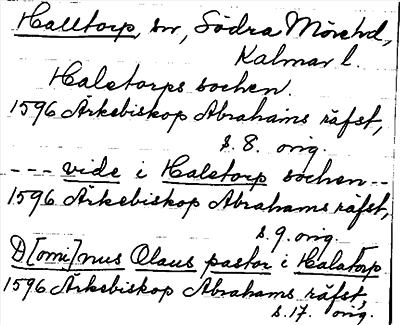 Halltorp, sn, Södra Möre hd,
Kalmar l.
Halstorps sochen.
1596 Ärkebiskop Abrahams räfst,
s. 8. orig.
--- vide i Halstorp sochen --
1596 Ärkebiskop Abrahams räfst,
s. 9. orig.
D[omi]nus Olaus pastor i Halstorp.
1596 Ärkebiskop Abrahams räfst,
s. 17. orig.